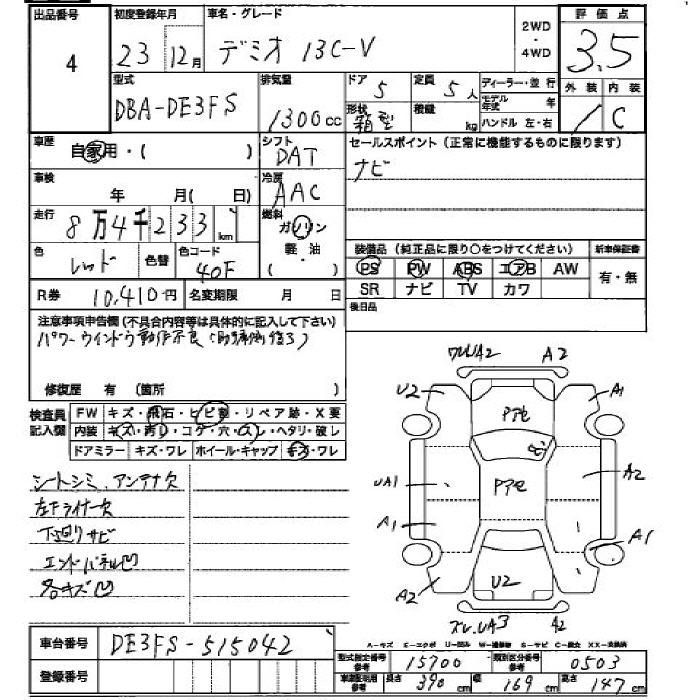 出品番号 初度登録年月 車名・グレード 2WD・4WD 評価点
4 23 12月 デミオ 13C-V 3.5
型式 排気量 ドア 5 定員 5人 ディーラー・並行 外装 内装
DBA-DE3FS 1300cc 形状 箱型 積載 kg モデル年式 年 ハンドル 左・右 1 C
車歴 自家用・( ) シフト DAT セールスポイント(正常に機能するものに限ります)
車検 年 月( 日) 冷房 AAC ナビ
走行 8万4千233km 燃料 ガソリン
色 レッド 色替 色コード 40F 軽・油 ( ) 装備品(純正品に限り○をつけてください) 新車保証書
PS PW ABS エアB AW 有・無
R券 10,410円 名変期限 月 日 SR ナビ TV カワ
注意事項申告欄(不具合内容等は具体的に記入して下さい) 後日品
パワーウインドウ動作不良(助手席側後ろ)
修復歴 有(箇所 )
検査員記入欄 FW キズ・飛石・ヒビ割・リペア跡・X要
内装 キズ・汚レ・コゲ・穴・スレ・ヘタリ・破レ
ドアミラー キズ・ワレ ホイール・キャップ キズ・ワレ
シートシミ、アンテナ欠
左下ライナー欠
下回りサビ
エンドパネル凹
各キズ凹
ワレUA2 A2
U2 A1
Pアセ
UA1 Pアセ A2
A1 A1
A2 U2
ズレ、UA3 A2
車台番号 DE3FS-515042
A-キズ E-エクボ U-凹み W-補修跡 S-サビ C-腐食 XX-交換済
型式指定番号 参考 15700 類別区分番号 参考 0503
登録番号 車庫証明用 参考 長さ 390cm 幅 169cm 高さ 147cm